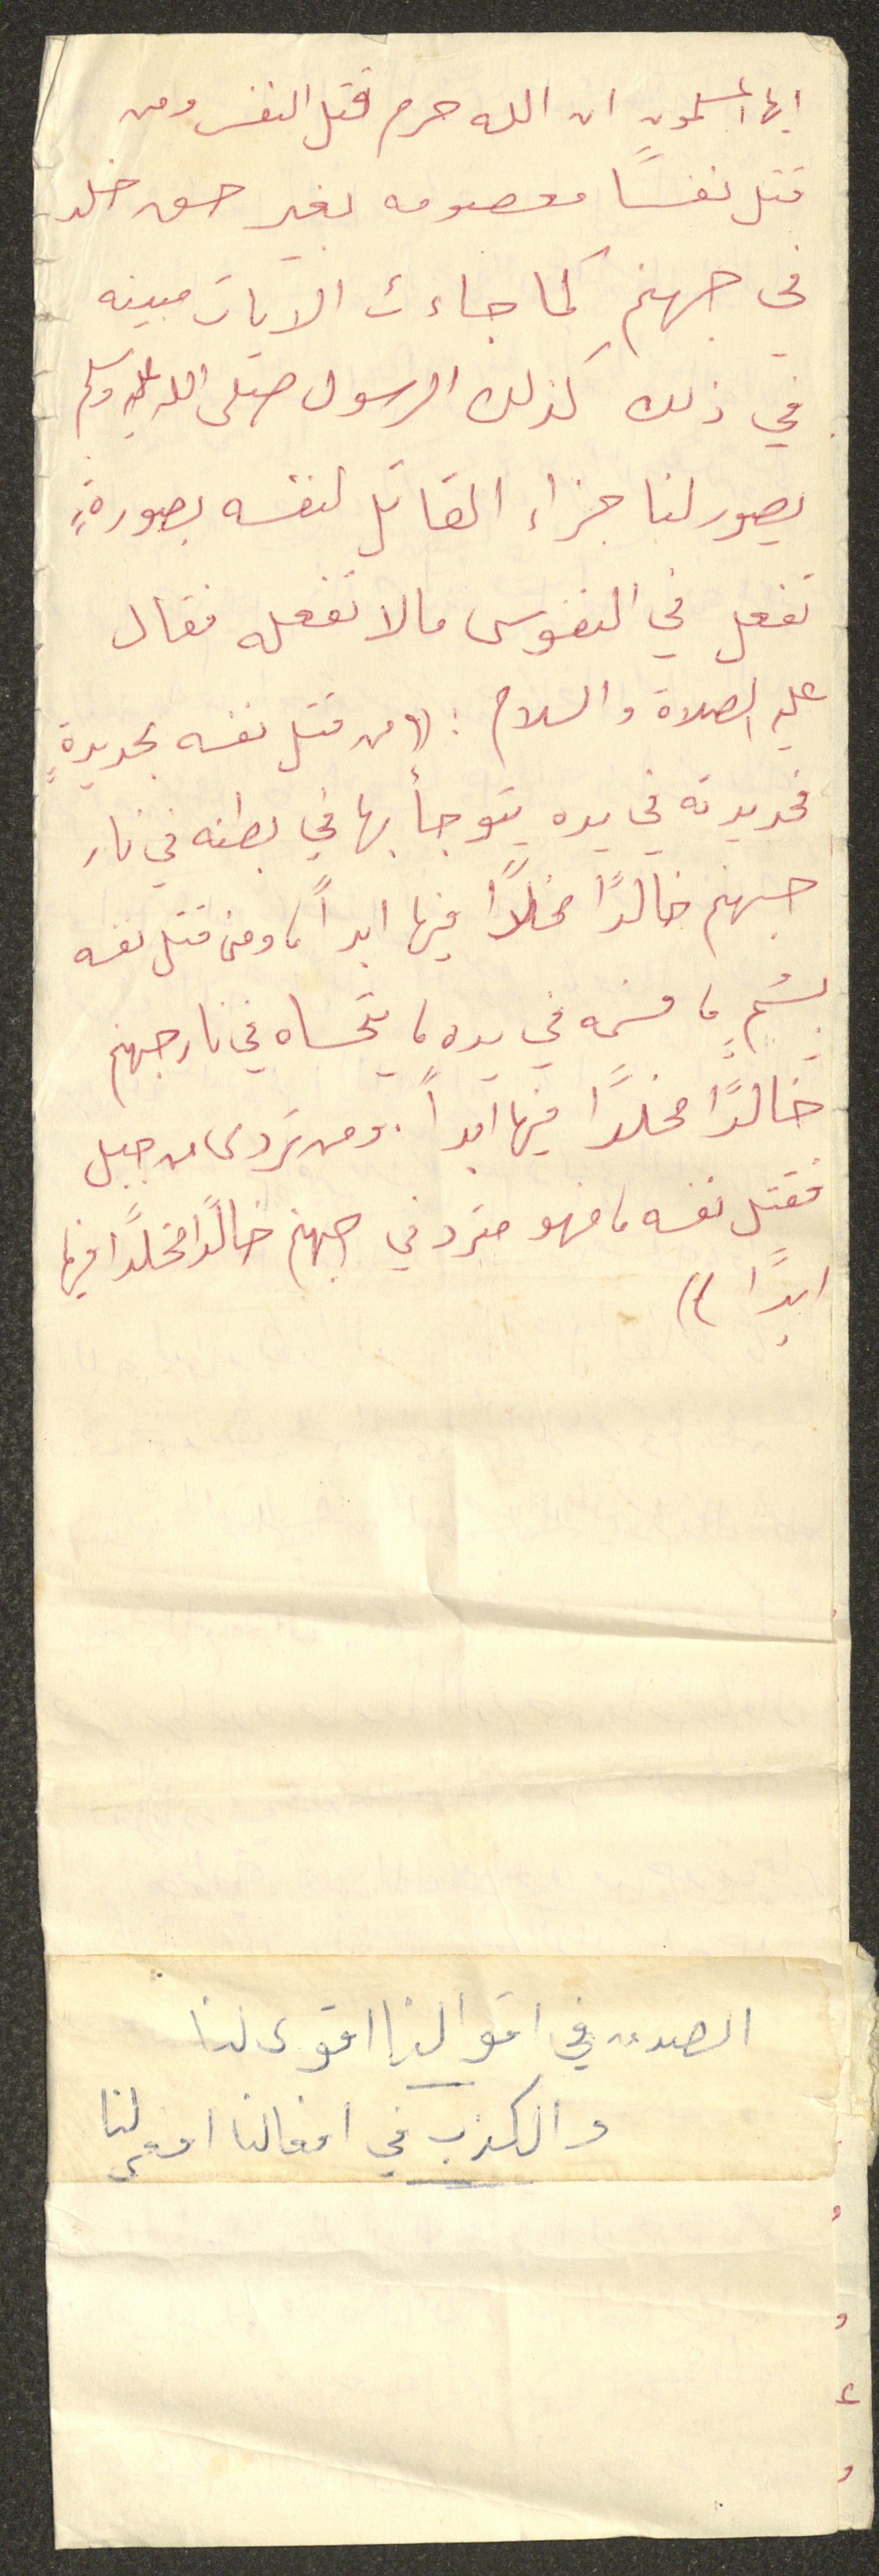 ايها المسلمون ان الله حرم قتل النفس ومن
قتل نفسًا معصومه بغير حق خلد
في جهنم كما جاءت الايات مبينه
في ذلك كذلك الرسول صلى الله عليه وسلم
يصور لنا جزاء القاتل لنفسه بصورةٍ
تفعل في النفوس مالا تفعله فقال
عليه الصلاة والسلام : ((من قتل نفسه بحديدةٍ
فحديدته في يده يتوجأ بها في بطنه في نار
جهنم خالدًا مخلدًا فيها ابداً، ومن قتل نفسه
بسُمٍ، فسمه في يده، يتحساه في نار جهنم
خالدًا مخلدًا فيها ابداً. ومن تردى من جبل
فقتل نفسه، فهو مترد في جهنم خالدًا مخلدًا فيها
ابدًا))
الصدق في اقوالنا اقوى لنا
والكذب في افعالنا افعى لنا